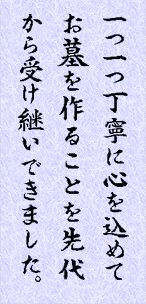 一つ一つ丁寧に心を込めて
お墓を作ることを先代
から受け継いできました。